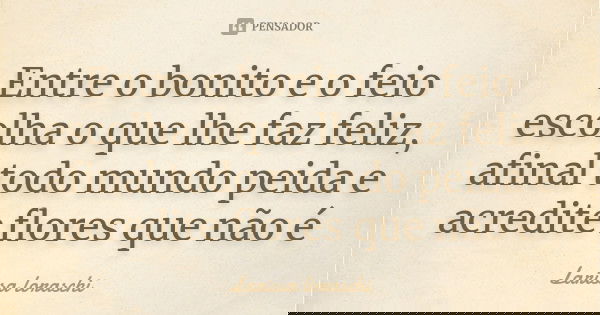 PENSADOR
Entre o bonito e o feio
escolha o que lhe faz feliz,
afinal todo mundo peida e
acredite flores que não é
Larissa Loraschi